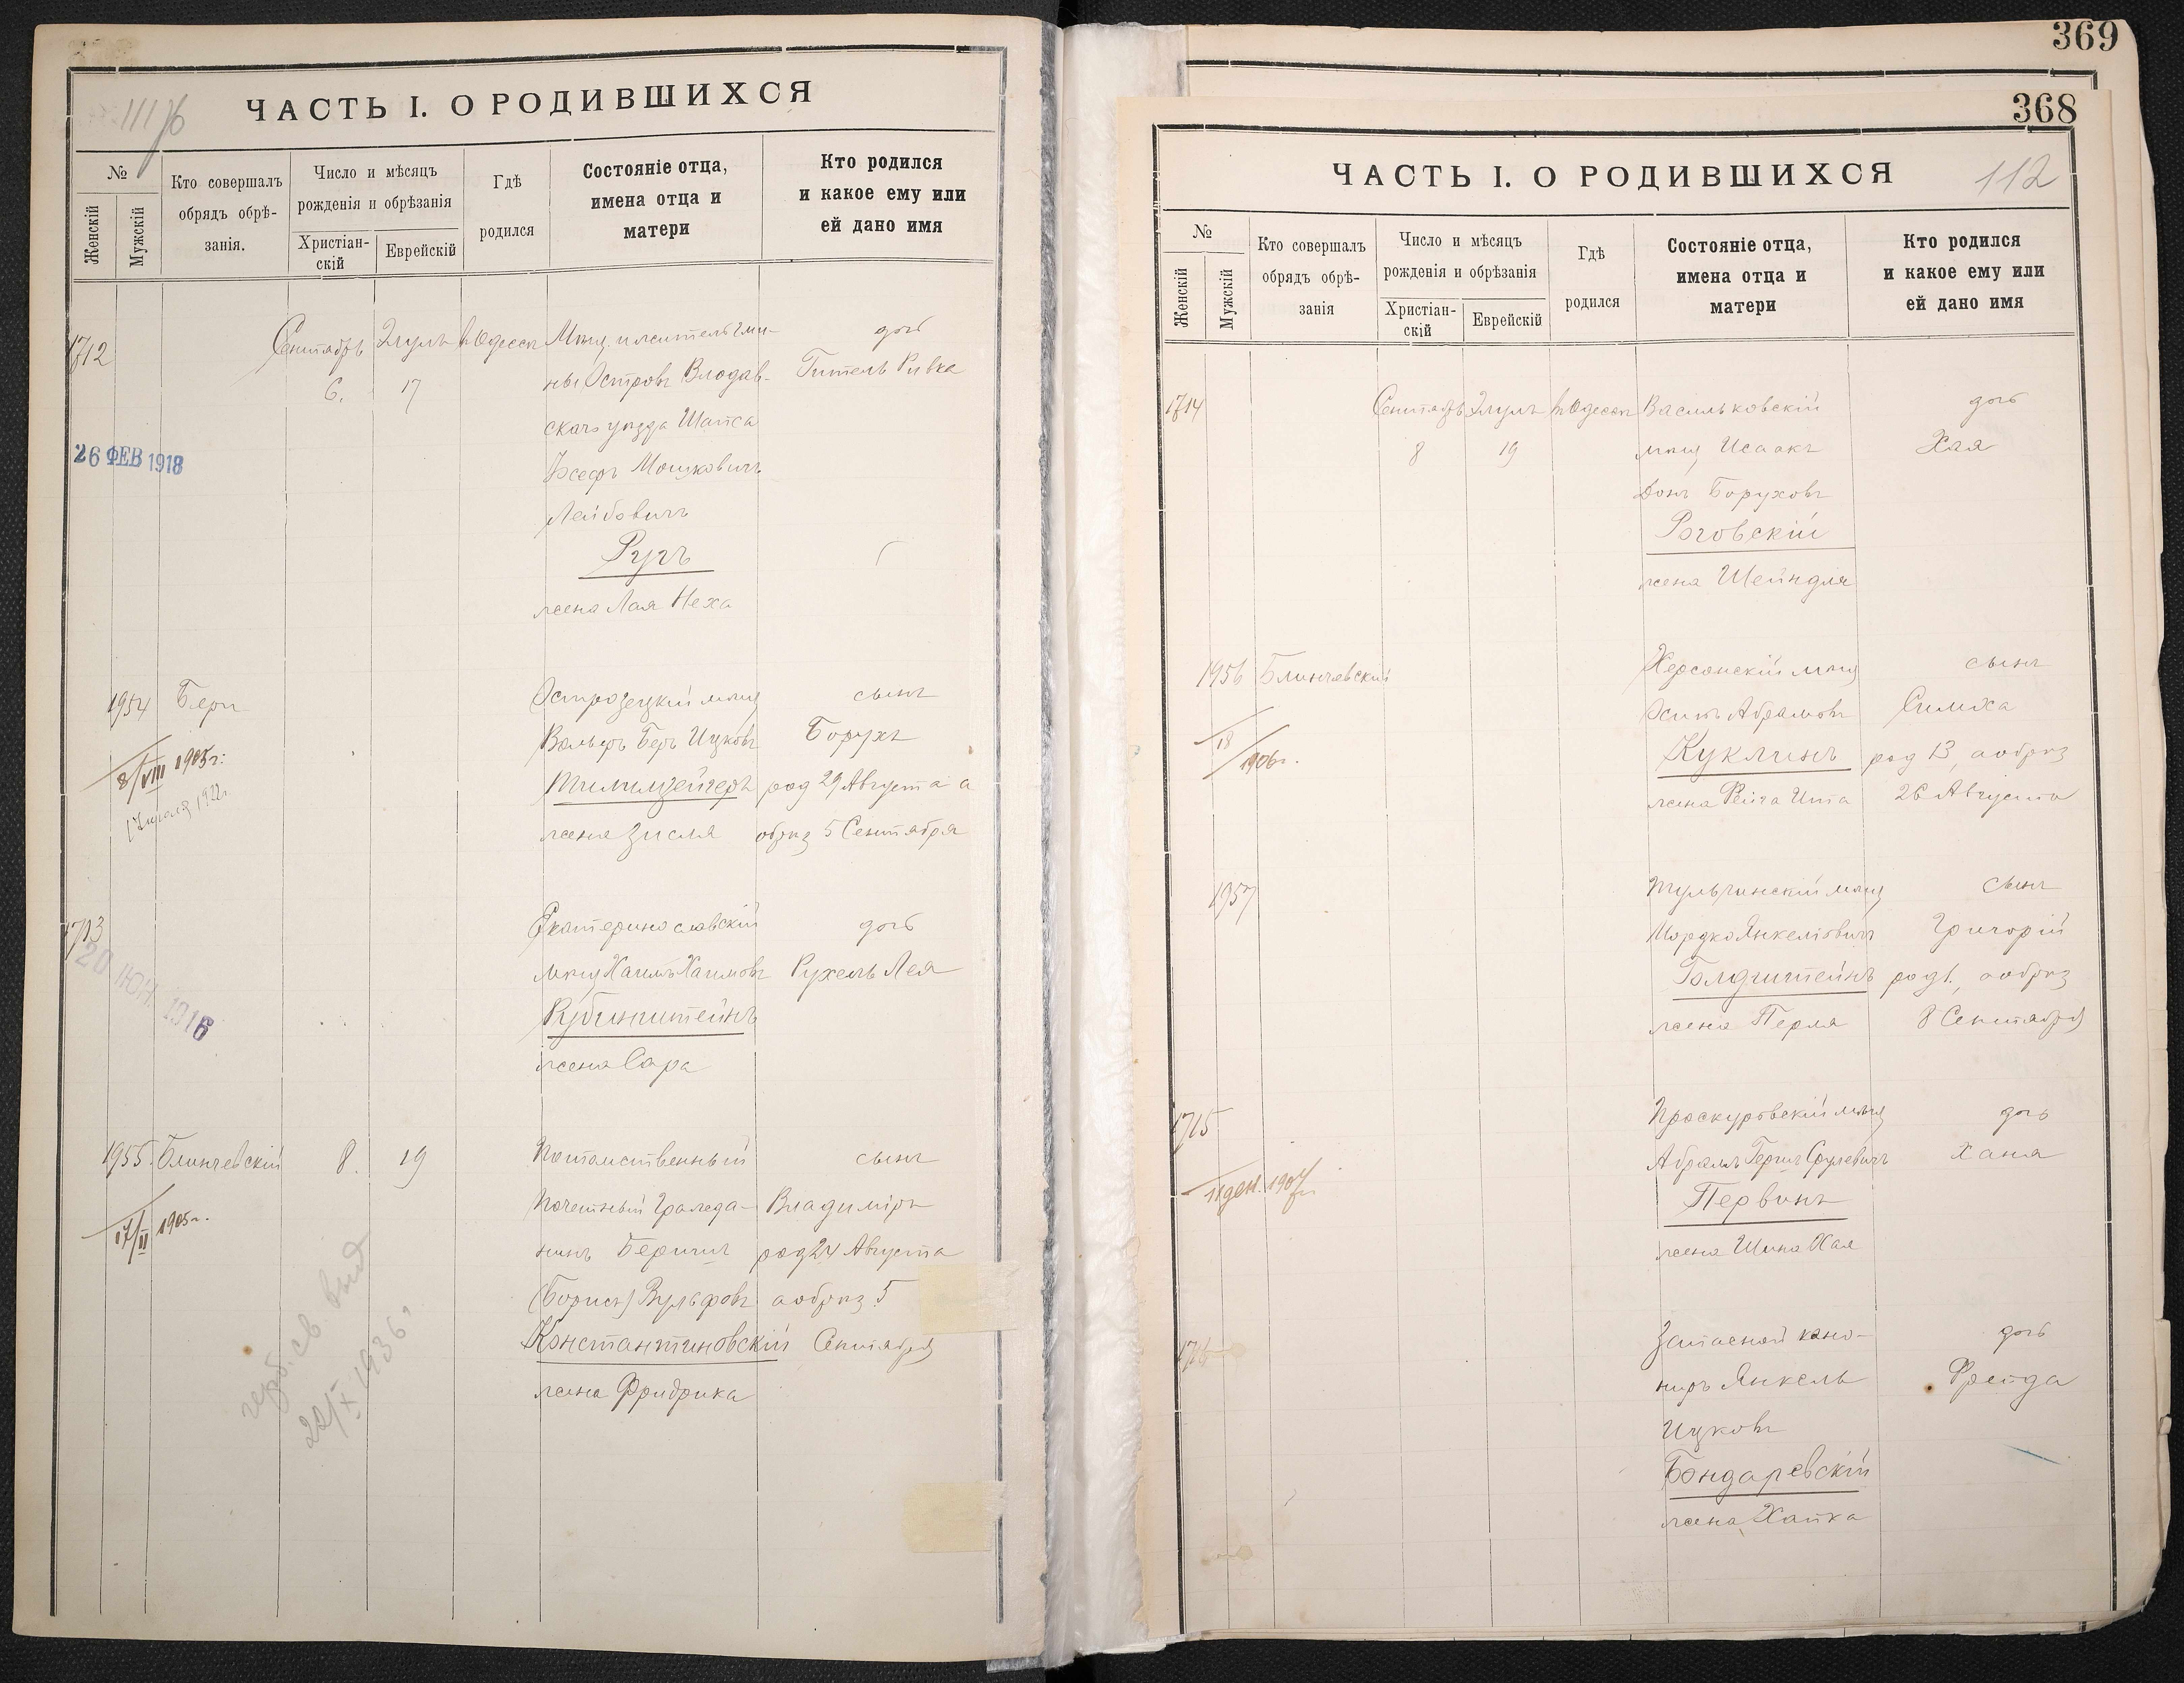 ЧАСТЬ I. О РОДИВШИХСЯ
№
Женскій
Мужскій
Кто совершалъ
обрядъ обрѣ-
занія.
Число и мѣсяцъ
рожденія и обрѣзанія
Христіан-
скій
Еврейскій
Гдѣ
родился
Состояніе отца,
имена отца и
матери
Кто родился
и какое ему или
ей дано имя
1712
Сентябрь
6.
Элулъ
17
Одесса
Мѣщ. и житель гми-
ны Островъ Влодав-
скаго уѣзда Шапса
Іосефъ Мошковичъ
Лейбовичъ
Ругъ
жена Лая Неха
дочь
Гитель Ривка
26 ФЕВ 1918
1954
Беръ
8/VIII 1905г.
Острозецкій мѣщ
Вольфъ Беръ Ицковъ
жена Зисля
сынъ
Борухъ
род 29 Августа а
обрѣз 5 Сентября
1713
20 ИЮН. 1916
Екатеринославскій
мѣщ Хаимъ Хаимовъ
Рубинштейнъ
жена Сара
дочь
Рухель Лея
1955.
Блинчевскій
17/II 1905г.
8.
19
Потомственный
Почетный Гражда-
нинъ Беришъ
(Борисъ) Вульфовъ
Константиновскій
жена Фридрика
сынъ
Владиміръ
род 24 Августа
а обрѣз 5
Сентября
22/X 1936г
369
368
ЧАСТЬ I. О РОДИВШИХСЯ
112
№
Женскій
Мужскій
Кто совершалъ
обрядъ обрѣ-
занія
Число и мѣсяцъ
рожденія и обрѣзанія
Христіан-
скій
Еврейскій
Гдѣ
родился
Состояніе отца,
имена отца и
матери
Кто родился
и какое ему или
ей дано имя
1714
Сентябрь
8
Элулъ
19
Одесса
Васильковскій
мѣщ Исаакъ
Донъ Боруховъ
Роговскій
жена Шейндля
дочь
Хая
1956
Блинчевскій
Херсонскій мѣщ
Осипъ Абрамовъ
Куклинъ
жена Рейза Ита
сынъ
Симха
род 13, а обрѣз
26 Августа
1957
Тульчинскій мѣщ
Мордко Янкелювичъ
Голдштейнъ
жена Перля
сынъ
Григорій
род 1., а обрѣз
8 Сентября
1715
Проскуровскій мѣщ
Абрамъ Гершъ Срулевичъ
Первинъ
жена Шина Хая
дочь
Хана
1716
Запасной кано-
ниръ Янкель
Ицковъ
Бондаревскій
жена Хайка
дочь
Фрейда